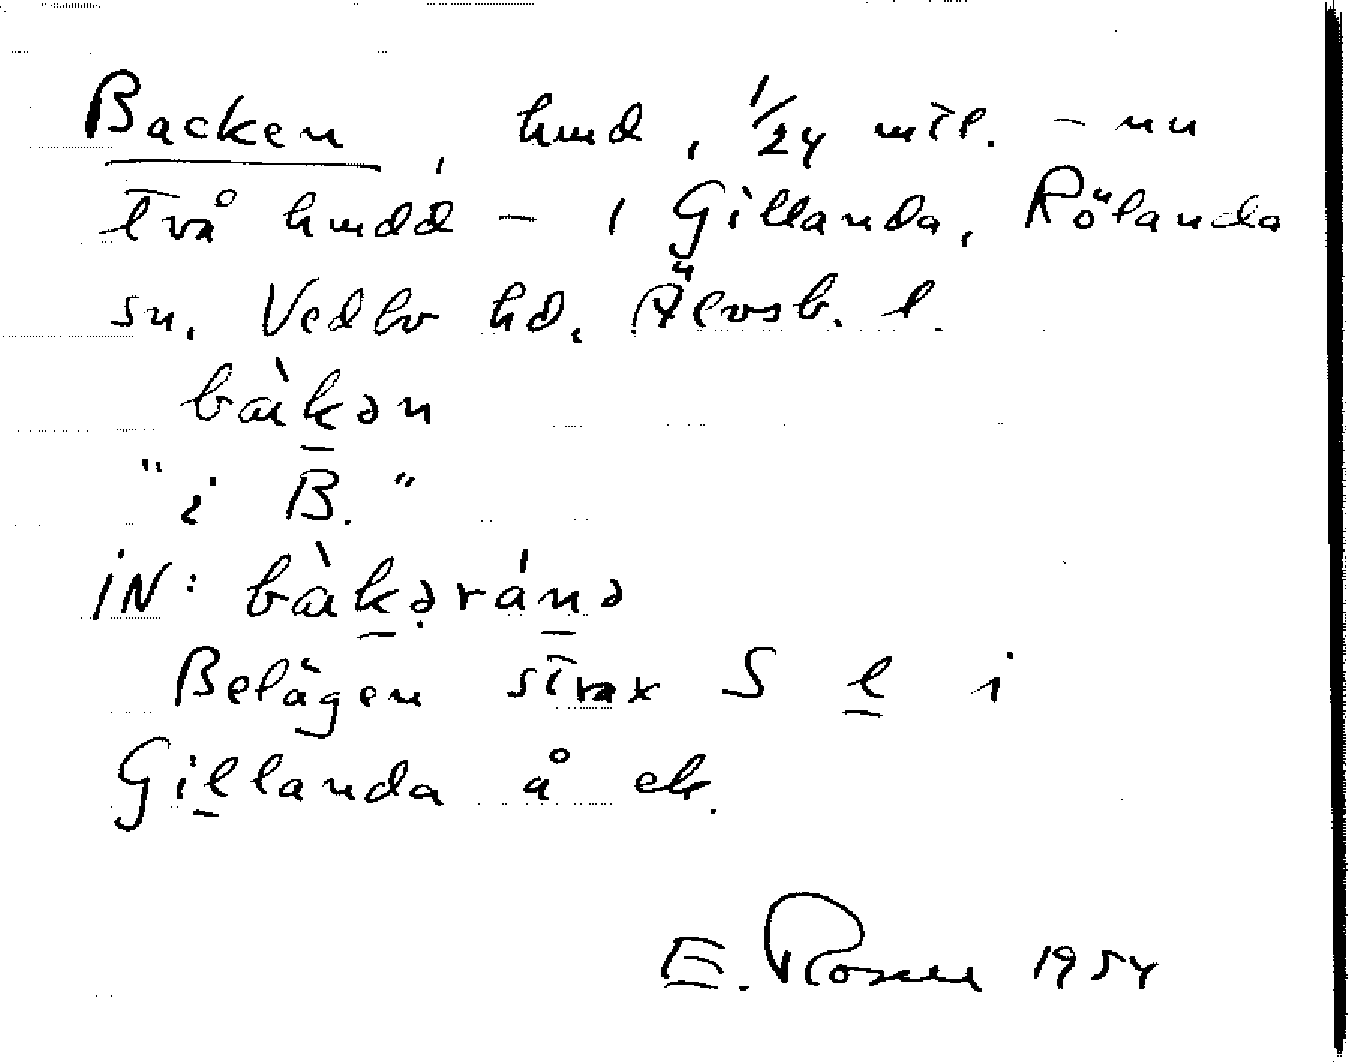 Backen, hmd, 1/24 mtl. – nu
två hmdd – i Gillanda, Rölanda
sn, Vedbo hd, Älvsb. l.
bàkən
"i B."
iN: bàkəránə
Belägen strax S e i
Gillanda å ek.
E. Rosell 1954